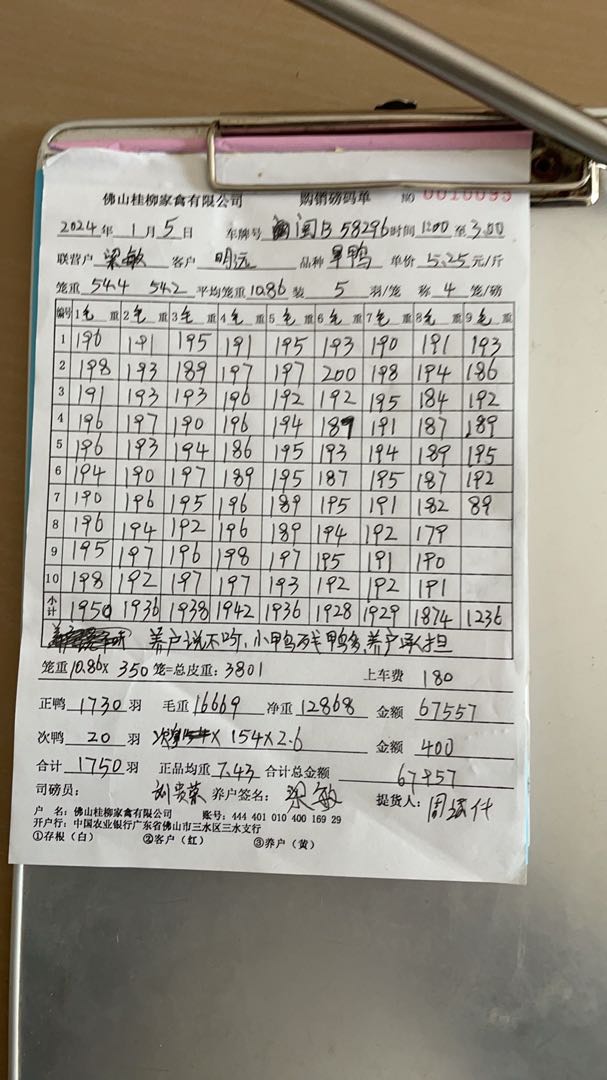 佛山桂柳家禽有限公司 购销磅码单 NO 0010095
2024年 1月 5日 车牌号 闽B58296 时间 12:00 至 3:00
联营户 梁敏 客户 明远 品种 旱鸭 单价 5.25 元/斤
笼重 54.4 54.2 平均笼重 10.86 装 5 羽/笼 称 4 笼/磅
编号 1毛重 2毛重 3毛重 4毛重 5毛重 6毛重 7毛重 8毛重 9毛重
1 196 191 195 191 195 193 190 191 193
2 198 193 189 197 197 200 198 194 186
3 191 193 193 196 192 192 195 184 192
4 196 197 190 196 194 189 191 187 189
5 196 193 194 186 195 193 194 189 195
6 194 190 197 189 195 187 195 187 192
7 190 196 195 196 189 195 191 182 89
8 196 194 192 196 189 194 192 179
9 195 197 196 198 197 195 191 190
10 198 192 197 197 193 192 192 191
小计 1950 1936 1938 1942 1936 1928 1929 1874 1236
养户说不吃,小鸭残鸭多,养户承担
笼重 10.86× 350 笼=总皮重: 3801 上车费 180
正鸭 1730 羽 毛重 16669 净重 12868 金额 67557
次鸭 20 羽 × 154×2.6 金额 400
合计 1750 羽 正品均重 7.43 合计总金额 67957
司磅员: 刘贵荣 养户签名: 梁敏 提货人: 周
户 名: 佛山桂柳家禽有限公司 账号: 444 401 010 400 169 29
开户行: 中国农业银行广东省佛山市三水区三水支行
①存根(白) ②客户(红) ③养户(黄)